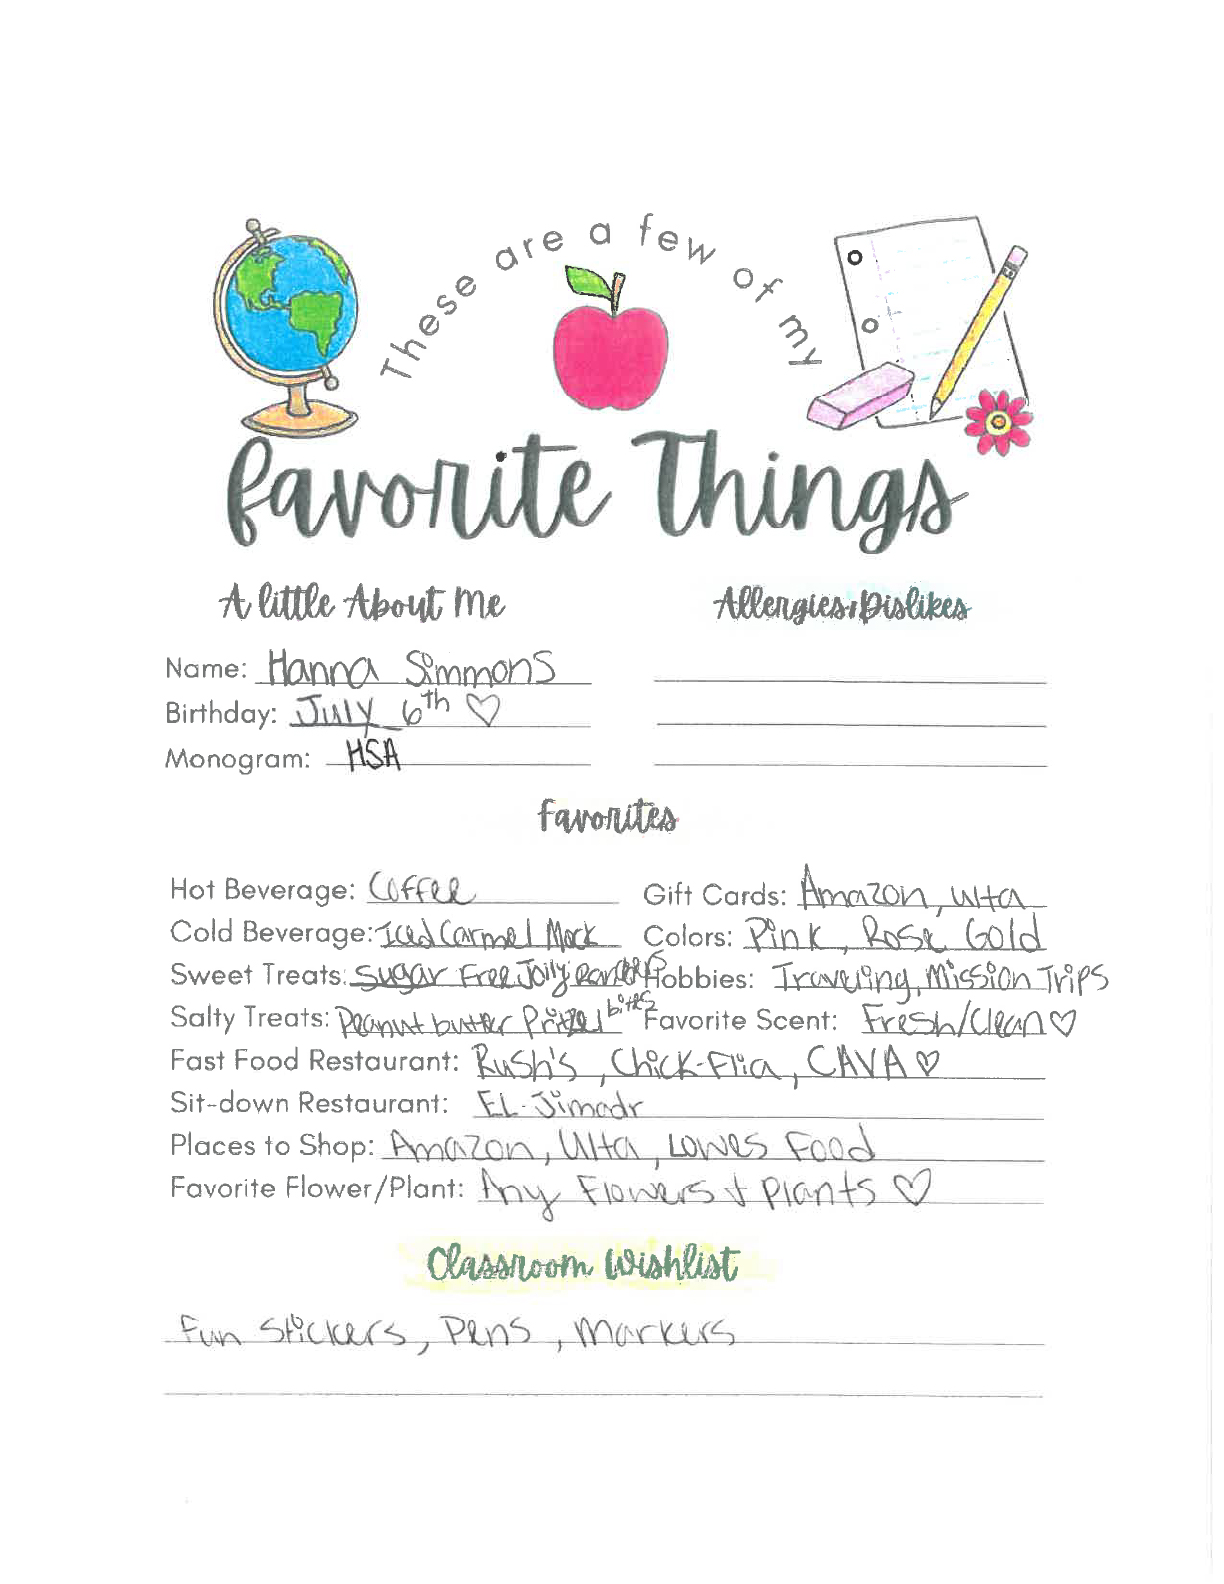 These are a few of my
favorite Things
A little About Me
Allergies/Dislikes
Name: Hanna Simmons
Birthday: July 6th ♡
Monogram: HSA
Favorites
Hot Beverage: Coffee
Gift Cards: Amazon, Ulta
Cold Beverage: Iced Carmel Mock
Colors: Pink, Rose Gold
Sweet Treats: Sugar Free Jolly
Hobbies: Traveling, Mission Trips
Salty Treats: Peanut butter Pritzel bites
Favorite Scent: Fresh/Clean ♡
Fast Food Restaurant: Rush's, Chick-Flia, CAVA ♡
Sit-down Restaurant: EL-Jimadr
Places to Shop: Amazon, Ulta, Lowes Food
Favorite Flower/Plant: Any Flowers + Plants ♡
Classroom Wishlist
Fun Stickers, Pens, Markers